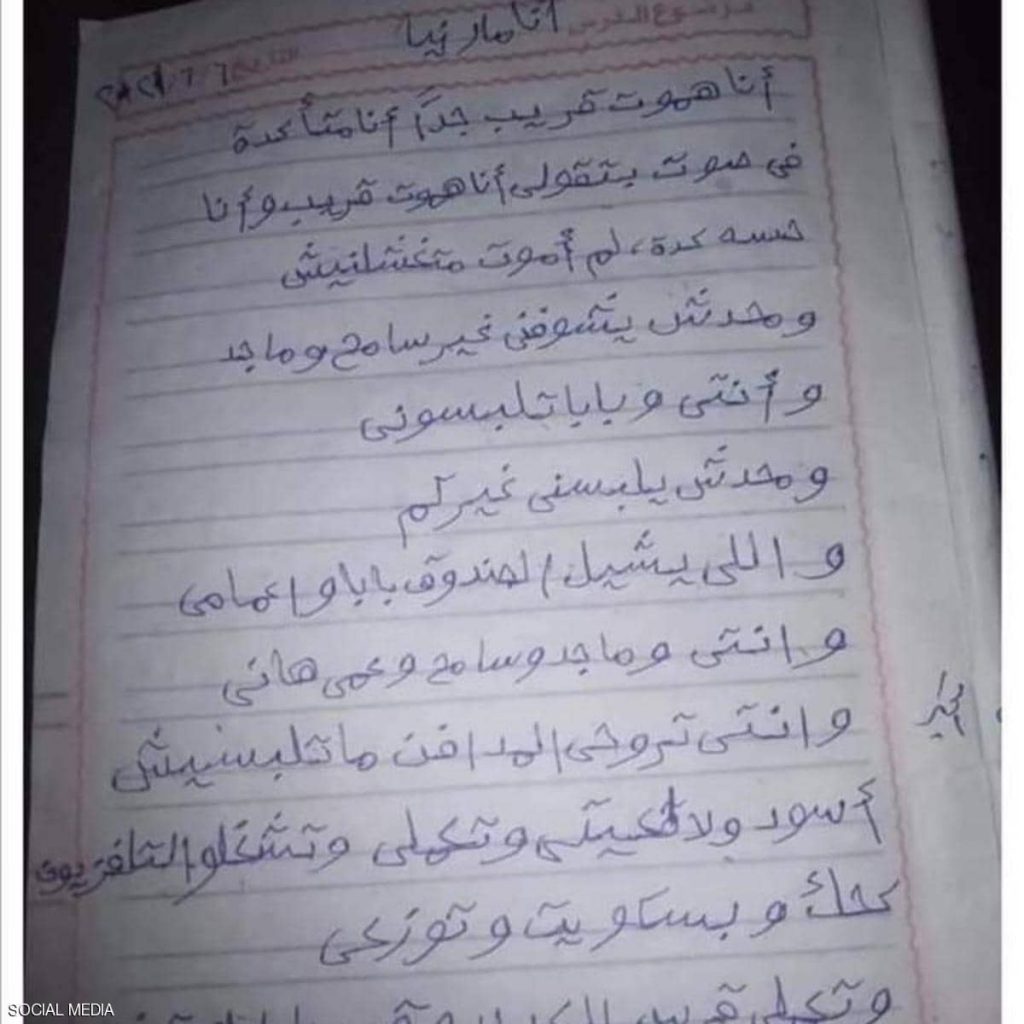 موضوع الدرس أنا مارنيا
التاريخ ٢٠٢١/٦/٦
أنا هموت قريب جداً أنا متأكدة
في صوت بتقولي أنا هموت قريب و أنا
حسه كدة، لم أموت متغسلنيش
و محدش يشوفني غير سامح و ماجد
و أنتي و بابا تلبسوني
و محدش يلبسني غيركم
و اللي يشيل الصندوق بابا و اعمامي
و انتي و ماجد و سامح و عمي هاني
و انتي تروحي المدافن ماتلبسيش
أسود ولا تعيطي و تكملي و تشغلو التلفزيون
كحك و بسكويت و توزعي
SOCIAL MEDIA